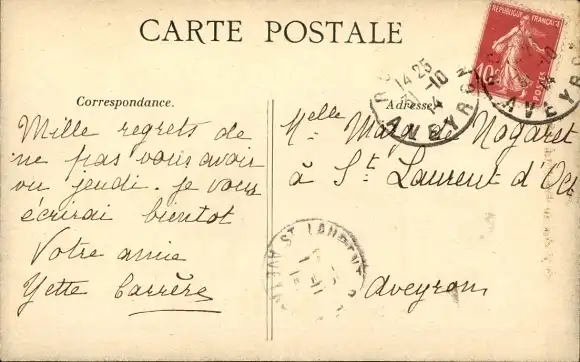 CARTE POSTALE
REPUBLIQUE FRANÇAISE
10
POSTES
14 25
31-10
14
AVEYRON
AVEYRON
Correspondance.
Mille regrets de
ne pas vous avoir
vu jeudi. Je vous
écrirai bientôt
Votre amie
Yette Carrère
Adresse
Melle de Nogaret
à St Laurent d'Olt
Aveyron
ST LAURENT